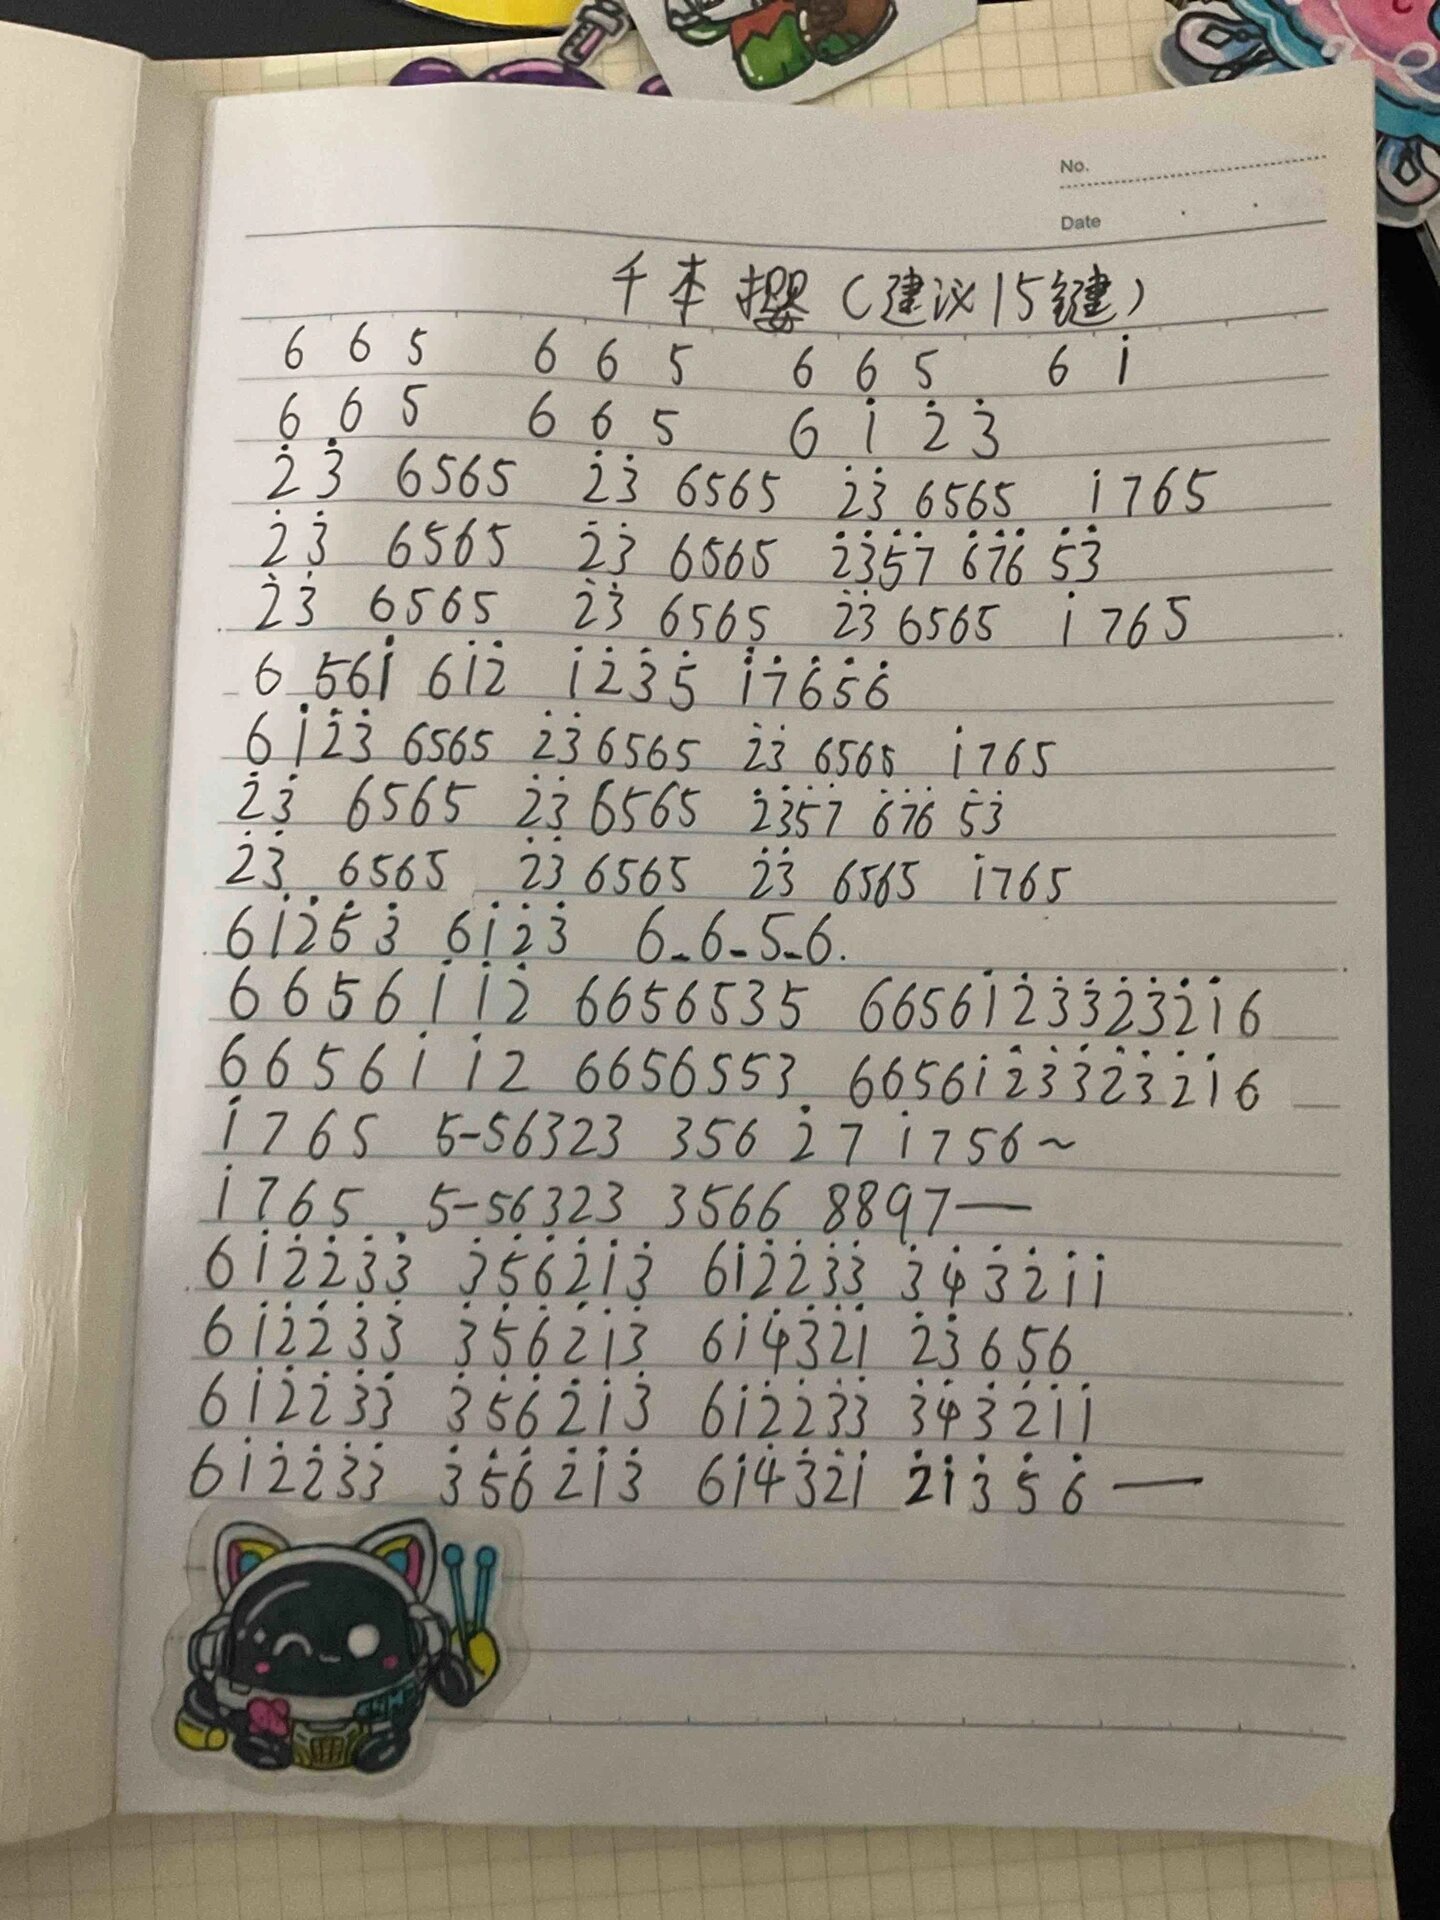 No.
Date
千本樱（建议15键）
6 6 5 6 6 5 6 6 5 6 1̇
6 6 5 6 6 5 6 1̇ 2̇ 3̇
2̇ 3̇ 6565 2̇3̇ 6565 2̇3̇ 6565 1̇765
2̇3̇ 6565 2̇3̇ 6565 2̇3̇5̇7̇ 6̇7̇6̇ 5̇3̇
2̇3̇ 6565 2̇3̇ 6565 2̇3̇ 6565 1̇765
6 561̇ 61̇2̇ 1̇2̇3̇5̇ 1̇7̇6̇5̇6̇
61̇2̇3̇ 6565 2̇3̇6565 2̇3̇ 6565 1̇765
2̇3̇ 6565 2̇3̇6565 2̇3̇5̇7̇ 6̇7̇6̇ 5̇3̇
2̇3̇ 6565 2̇3̇6565 2̇3̇ 6565 1̇765
61̇2̇5̇3̇ 61̇2̇3̇ 6-6-5-6.
66561̇1̇2̇ 6656535 66561̇2̇3̇3̇2̇3̇2̇1̇6
66561̇1̇2 6656553 66561̇2̇3̇3̇2̇3̇2̇1̇6
1̇765 5-56323 356 2̇7 1̇756~
1̇765 5-56323 3566 8897—
61̇2̇2̇3̇3̇ 3̇5̇6̇2̇1̇3̇ 61̇2̇2̇3̇3̇ 3̇4̇3̇2̇1̇1̇
61̇2̇2̇3̇3̇ 3̇5̇6̇2̇1̇3̇ 61̇4̇3̇2̇1̇ 2̇3̇656
61̇2̇2̇3̇3̇ 3̇5̇6̇2̇1̇3̇ 61̇2̇2̇3̇3̇ 3̇4̇3̇2̇1̇1̇
61̇2̇2̇3̇3̇ 3̇5̇6̇2̇1̇3̇ 61̇4̇3̇2̇1̇ 2̇1̇3̇5̇6̇—